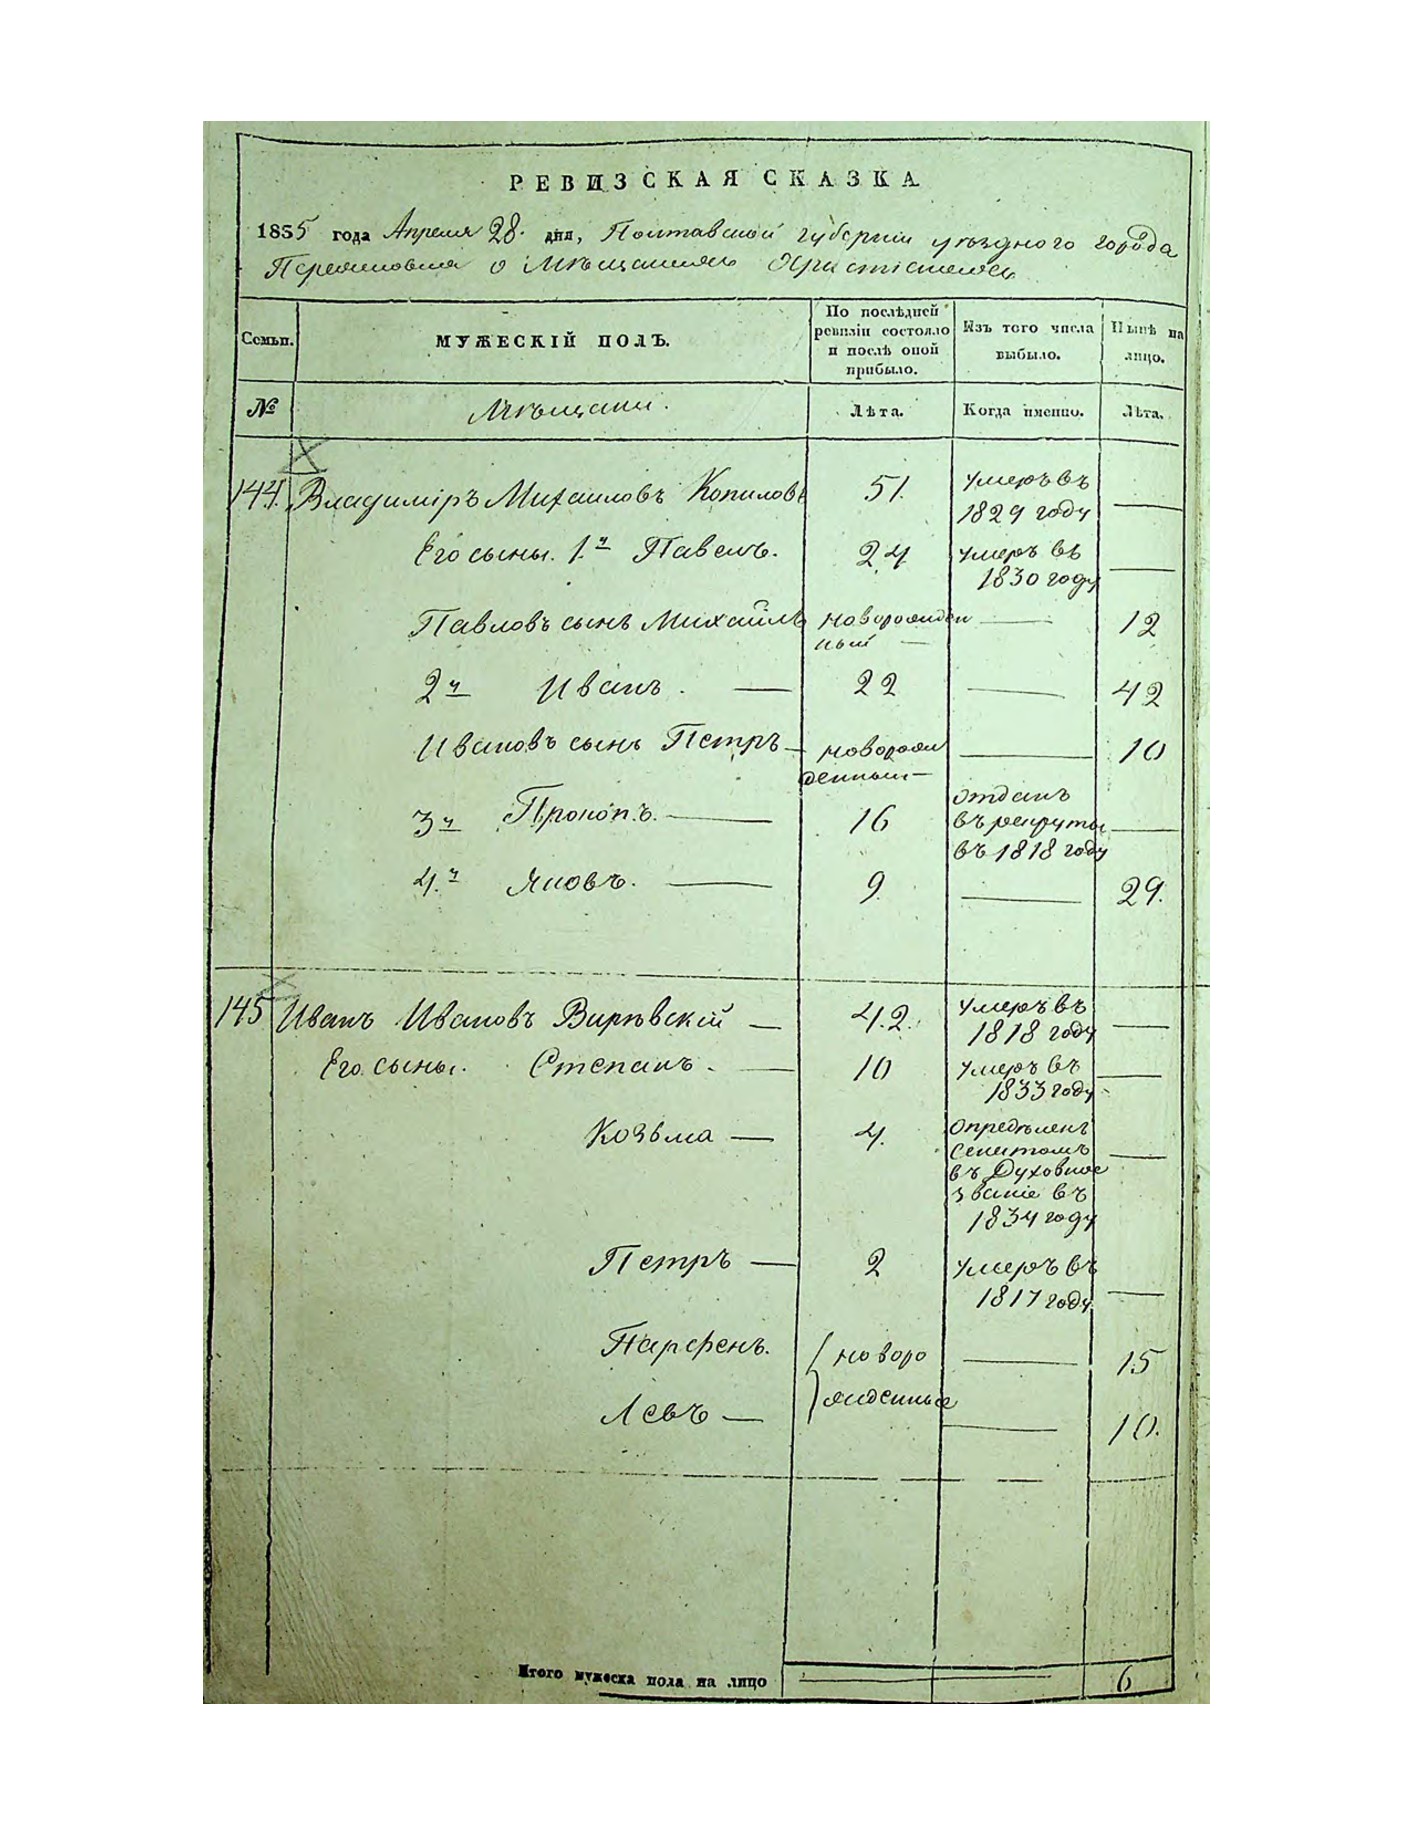 РЕВИЗСКАЯ СКАЗКА
1835 года Апреля 28 дня, Полтавской губернии уѣзднаго города
о Мѣщанахъ
Семьи.
МУЖЕСКІЙ ПОЛЪ.
По послѣдней
ревизіи состояло
и послѣ оной
прибыло.
Изъ того числа
выбыло.
Нынѣ на
лицо.
№
Мѣщани.
Лѣта.
Когда именно.
Лѣта.
144. Владиміръ Михаиловъ Копиловъ 51. умеръ въ
1829 году
Его сыны. 1й Павелъ. 24 умеръ въ
1830 году
Павловъ сынъ Михайлъ новорожден 12
ный
2й Иванъ. 22 42
Ивановъ сынъ Петръ новорож 10
денный
3й Прокопъ. 16 отданъ
въ рекруты
въ 1818 году
4.й Яковъ. 9. 29.
145 Иванъ Ивановъ Вирѣвскій 42. умеръ въ
1818 году
Его сыны. Степанъ. 10 умеръ въ
1833 году
Козьма 4. опредѣленъ
Сенатомъ
въ Духовное
званіе въ
1834 году
Петръ 2 умеръ въ
1817 году
Парфенъ. новоро 15
Левъ жденные 10.
Итого мужеска пола на лицо 6